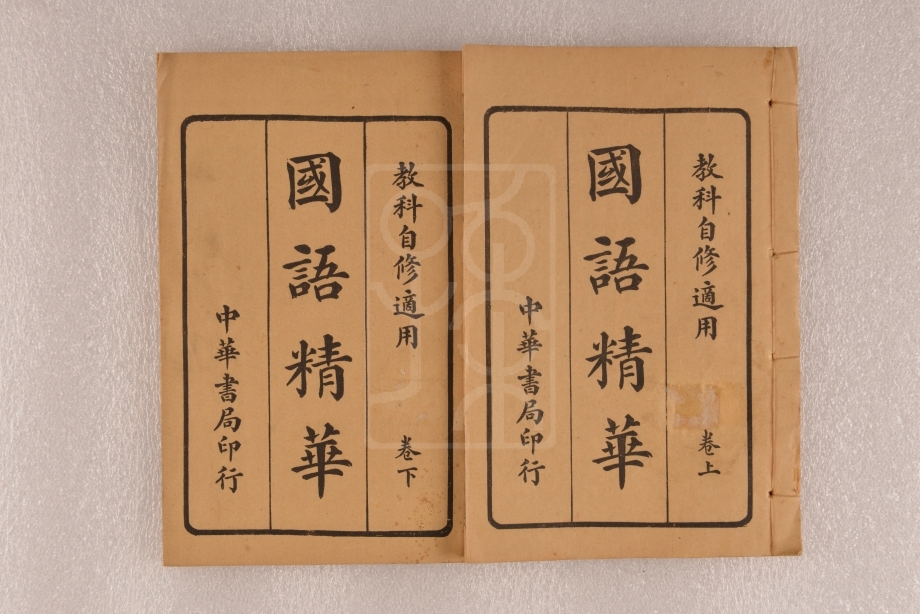 教科自修適用 卷上
國語精華
中華書局印行
教科自修適用 卷下
國語精華
中華書局印行